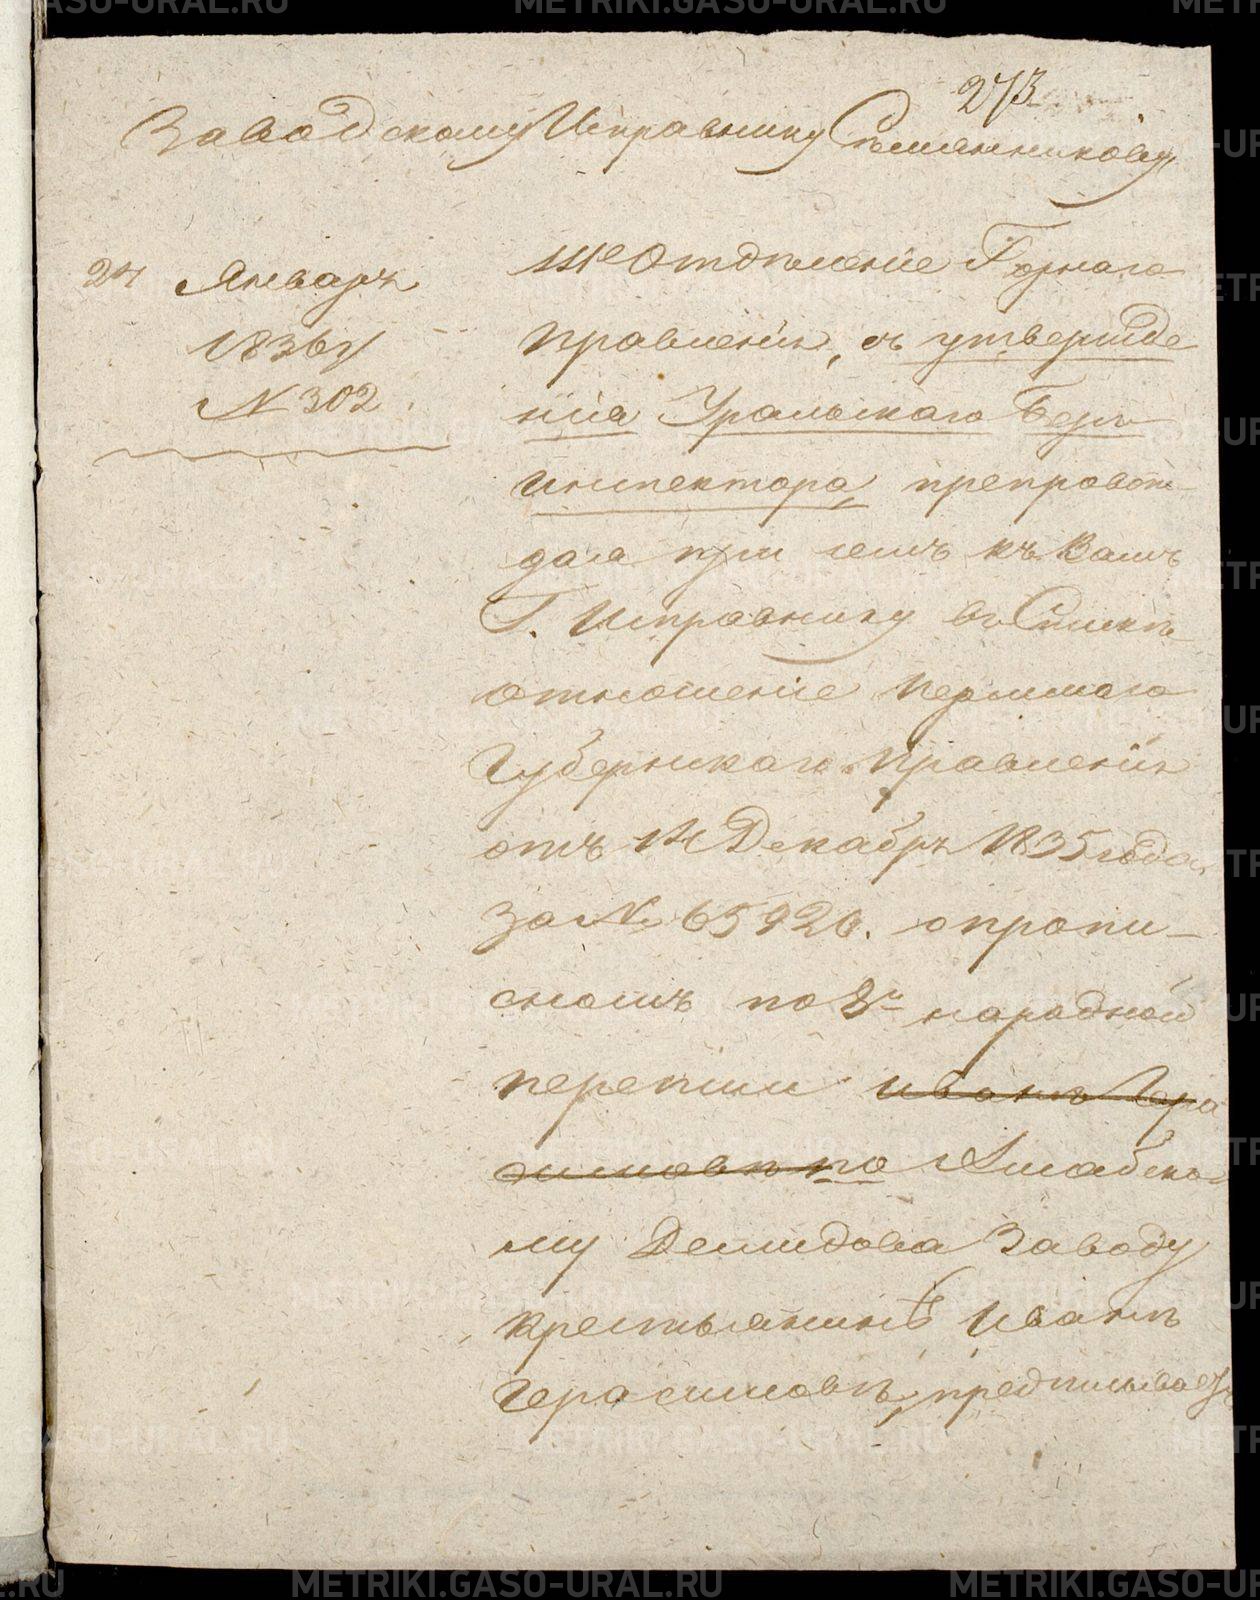 273
Заводскому Исправнику
24 Января
1836 г
N 302
III е Отделенiе Горнаго
Правленiя, съ утвержде
нiя Уральскаго Бергъ
Инспектора, препровож
дая при семъ къ Вамъ
Г. Исправнику въ Спискѣ
отношенiе Пермскаго
Губернскаго Правленiя
отъ 14 Декабря 1835 года
за № 65926. о пропи-
сномъ по 8й народной
переписи Иванѣ Гера
симовѣ по
му Демидова Заводу
крестьянинѣ Иванѣ
Герасимовѣ, предписываетъ
METRIKI.GASO-URAL.RU